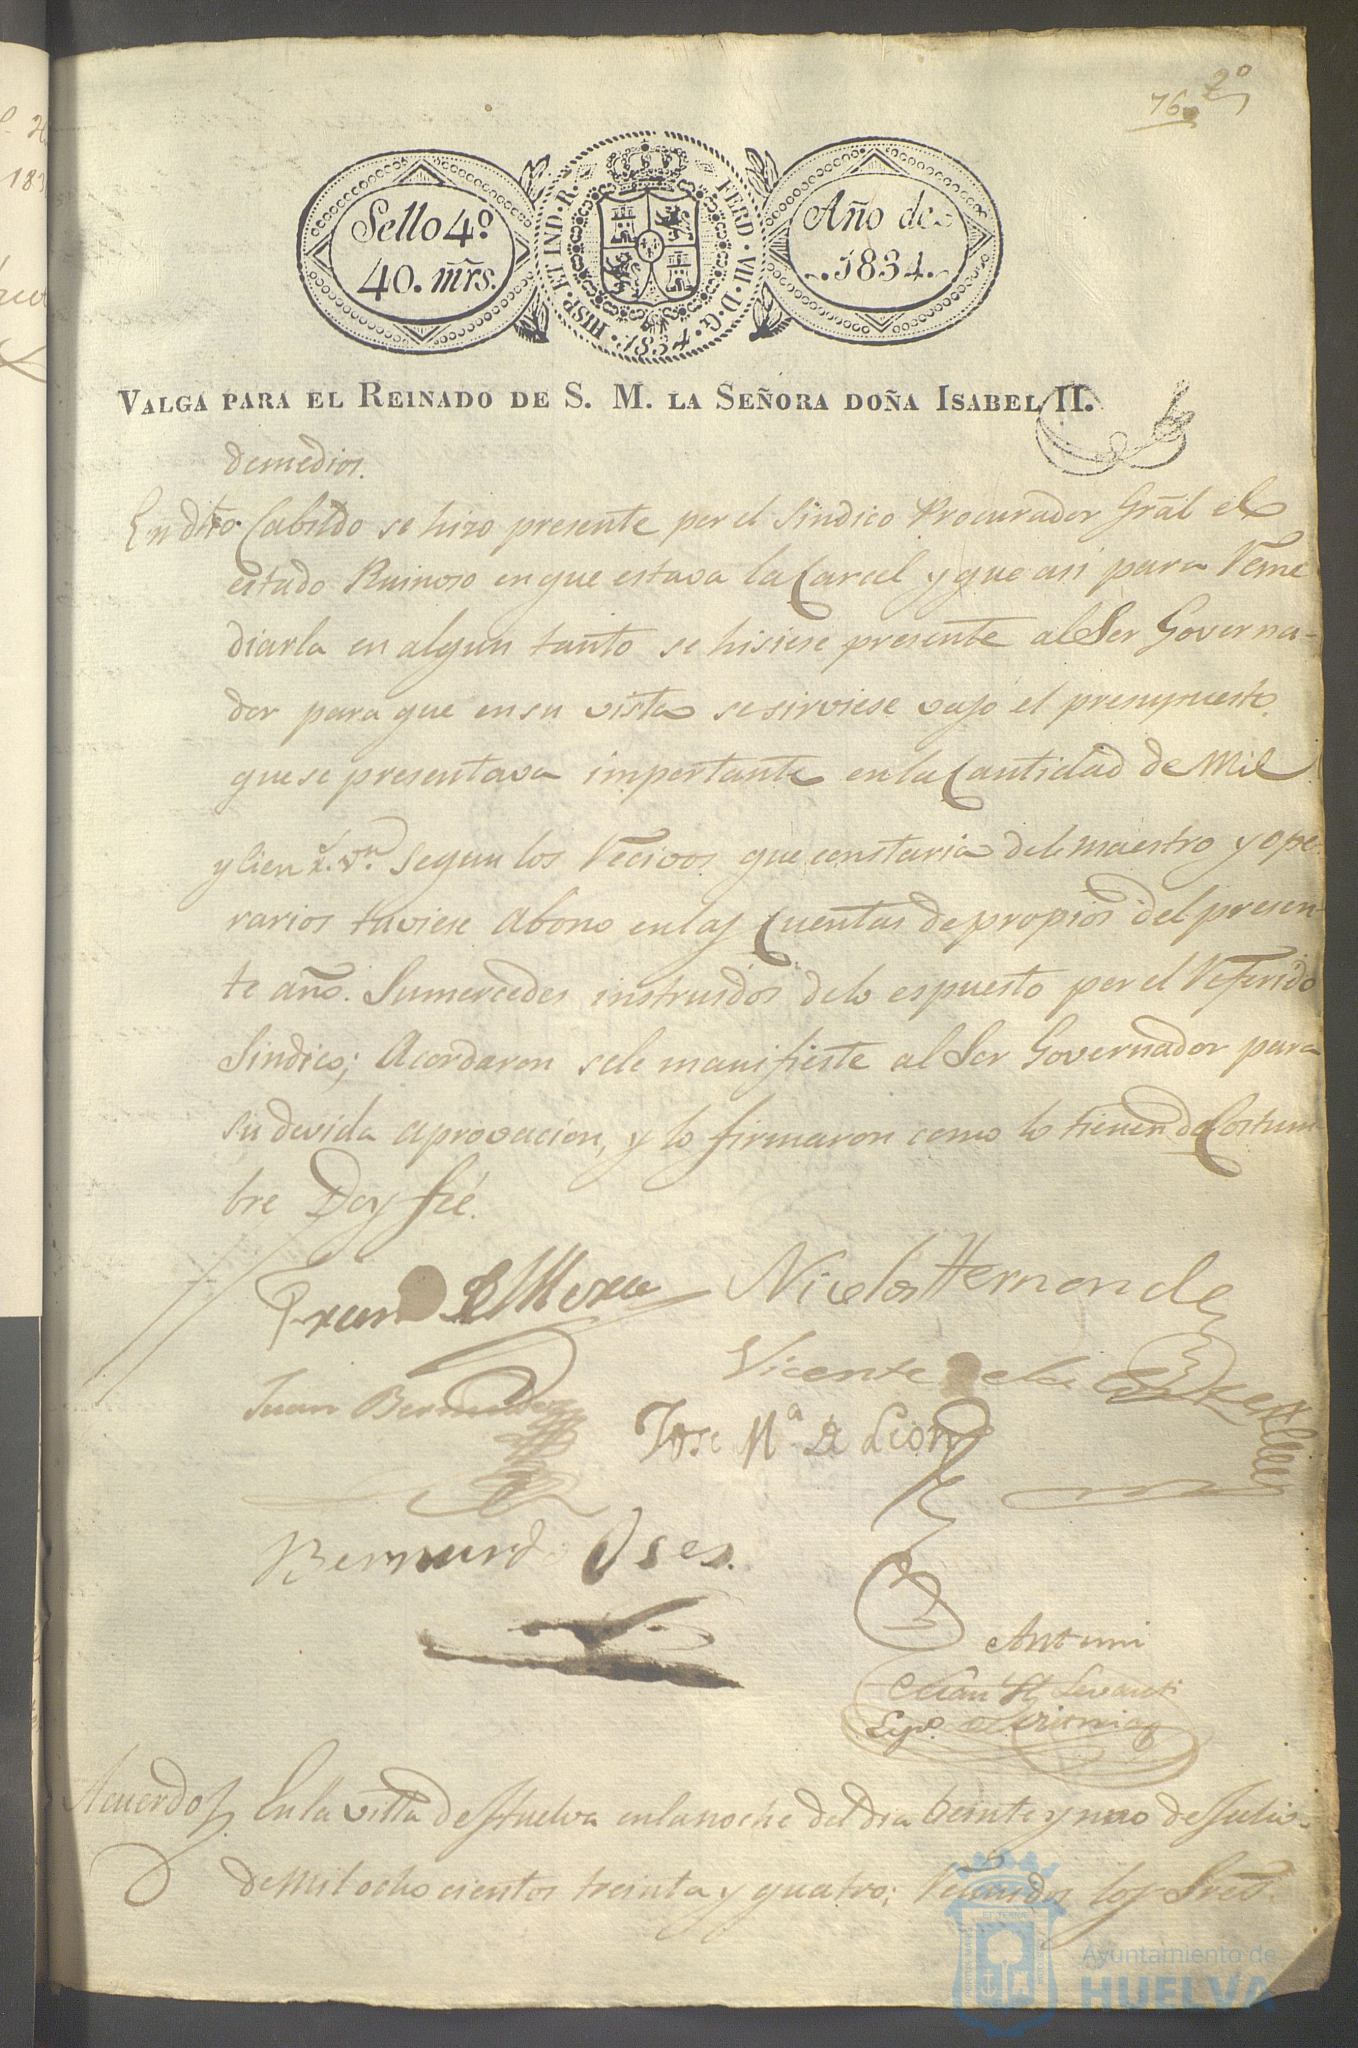 76
2º
Sello 4º.
40. mrs.
HISP. ET IND. R. FERD. VII. D. G. 1834.
Año de
1834.
VALGA PARA EL REINADO DE S. M. LA SEÑORA DOÑA ISABEL II.
demedios.
En dho. Cabildo se hizo presente por el Sindico Procurador Gral el
estado Ruinoso en que estava la Carcel y que asi para Reme
diarla en algun tanto se hisiese presente al Sor Governa-
dor para que en su vista se sirviese vajo el presupuesto
que se presentava importante en la Cantidad de Mil
y Cien r. vn. segun los Recivos que constaria del maestro y ope-
rarios tuviese Abono en las Cuentas de propios del presen-
te año. Sumercedes instruidos de lo espuesto por el Referido
Sindico; Acordaron se le manifieste al Sor Governador para
su devida aprovacion, y lo firmaron como lo tienen de Costum-
bre Doy fée.
Nicolas Hernandez
Vicente de la
Juan Bermudez
Jose Mª de Leon
Bernardo Oses.
Antoni
Acuerdo En la villa de Huelva en la noche del dia beinte y uno de Julio
de Mil ocho cientos treinta y quatro; Reunidos los Sres.
Ayuntamiento de
HUELVA